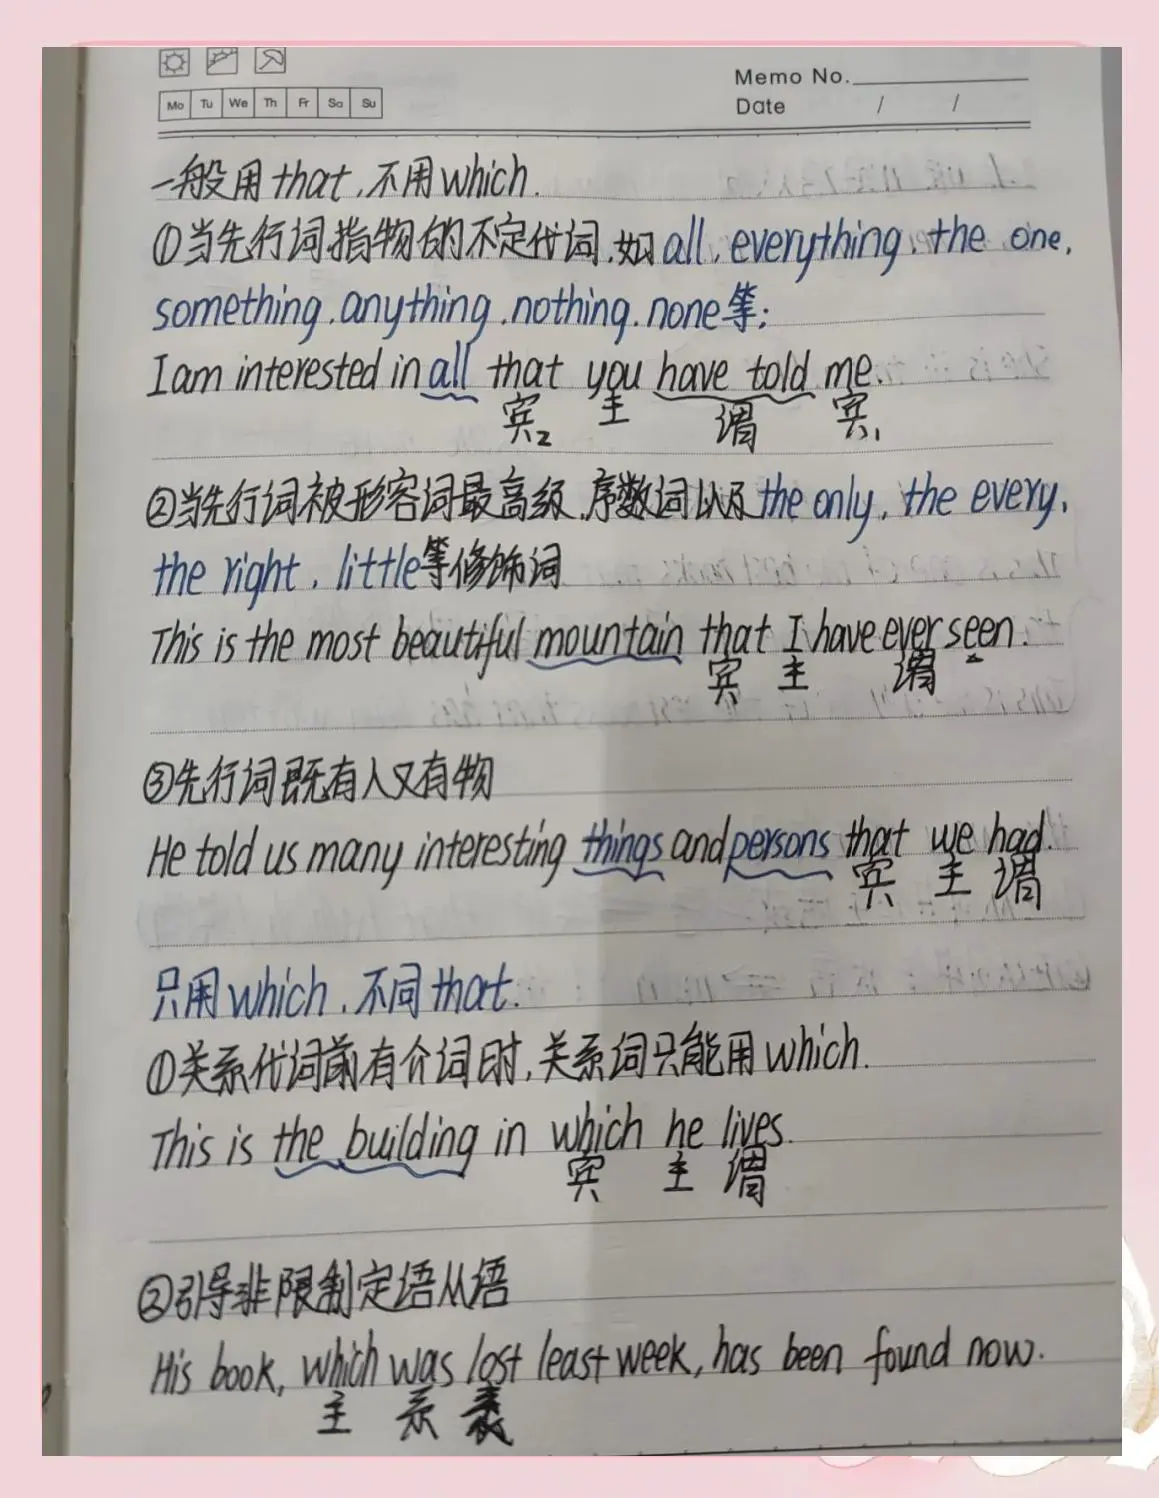 Memo No.
Mo Tu We Th Fr Sa Su
Date / /
一般用that,不用which.
①当先行词指物的不定代词.如all, everything, the one,
something.anything.nothing.none等;
I am interested in all that you have told me.
宾2 主 谓 宾1
②当先行词被形容词最高级,序数词以及the only, the every,
the right, little等修饰词
This is the most beautiful mountain that I have ever seen.
宾 主 谓
③先行词既有人又有物
He told us many interesting things and persons that we had.
宾 主 谓
只用which,不同that.
①关系代词前有介词时,关系词只能用which.
This is the building in which he lives.
宾 主 谓
②引导非限制定语从语
His book, which was lost least week, has been found now.
主 系 表